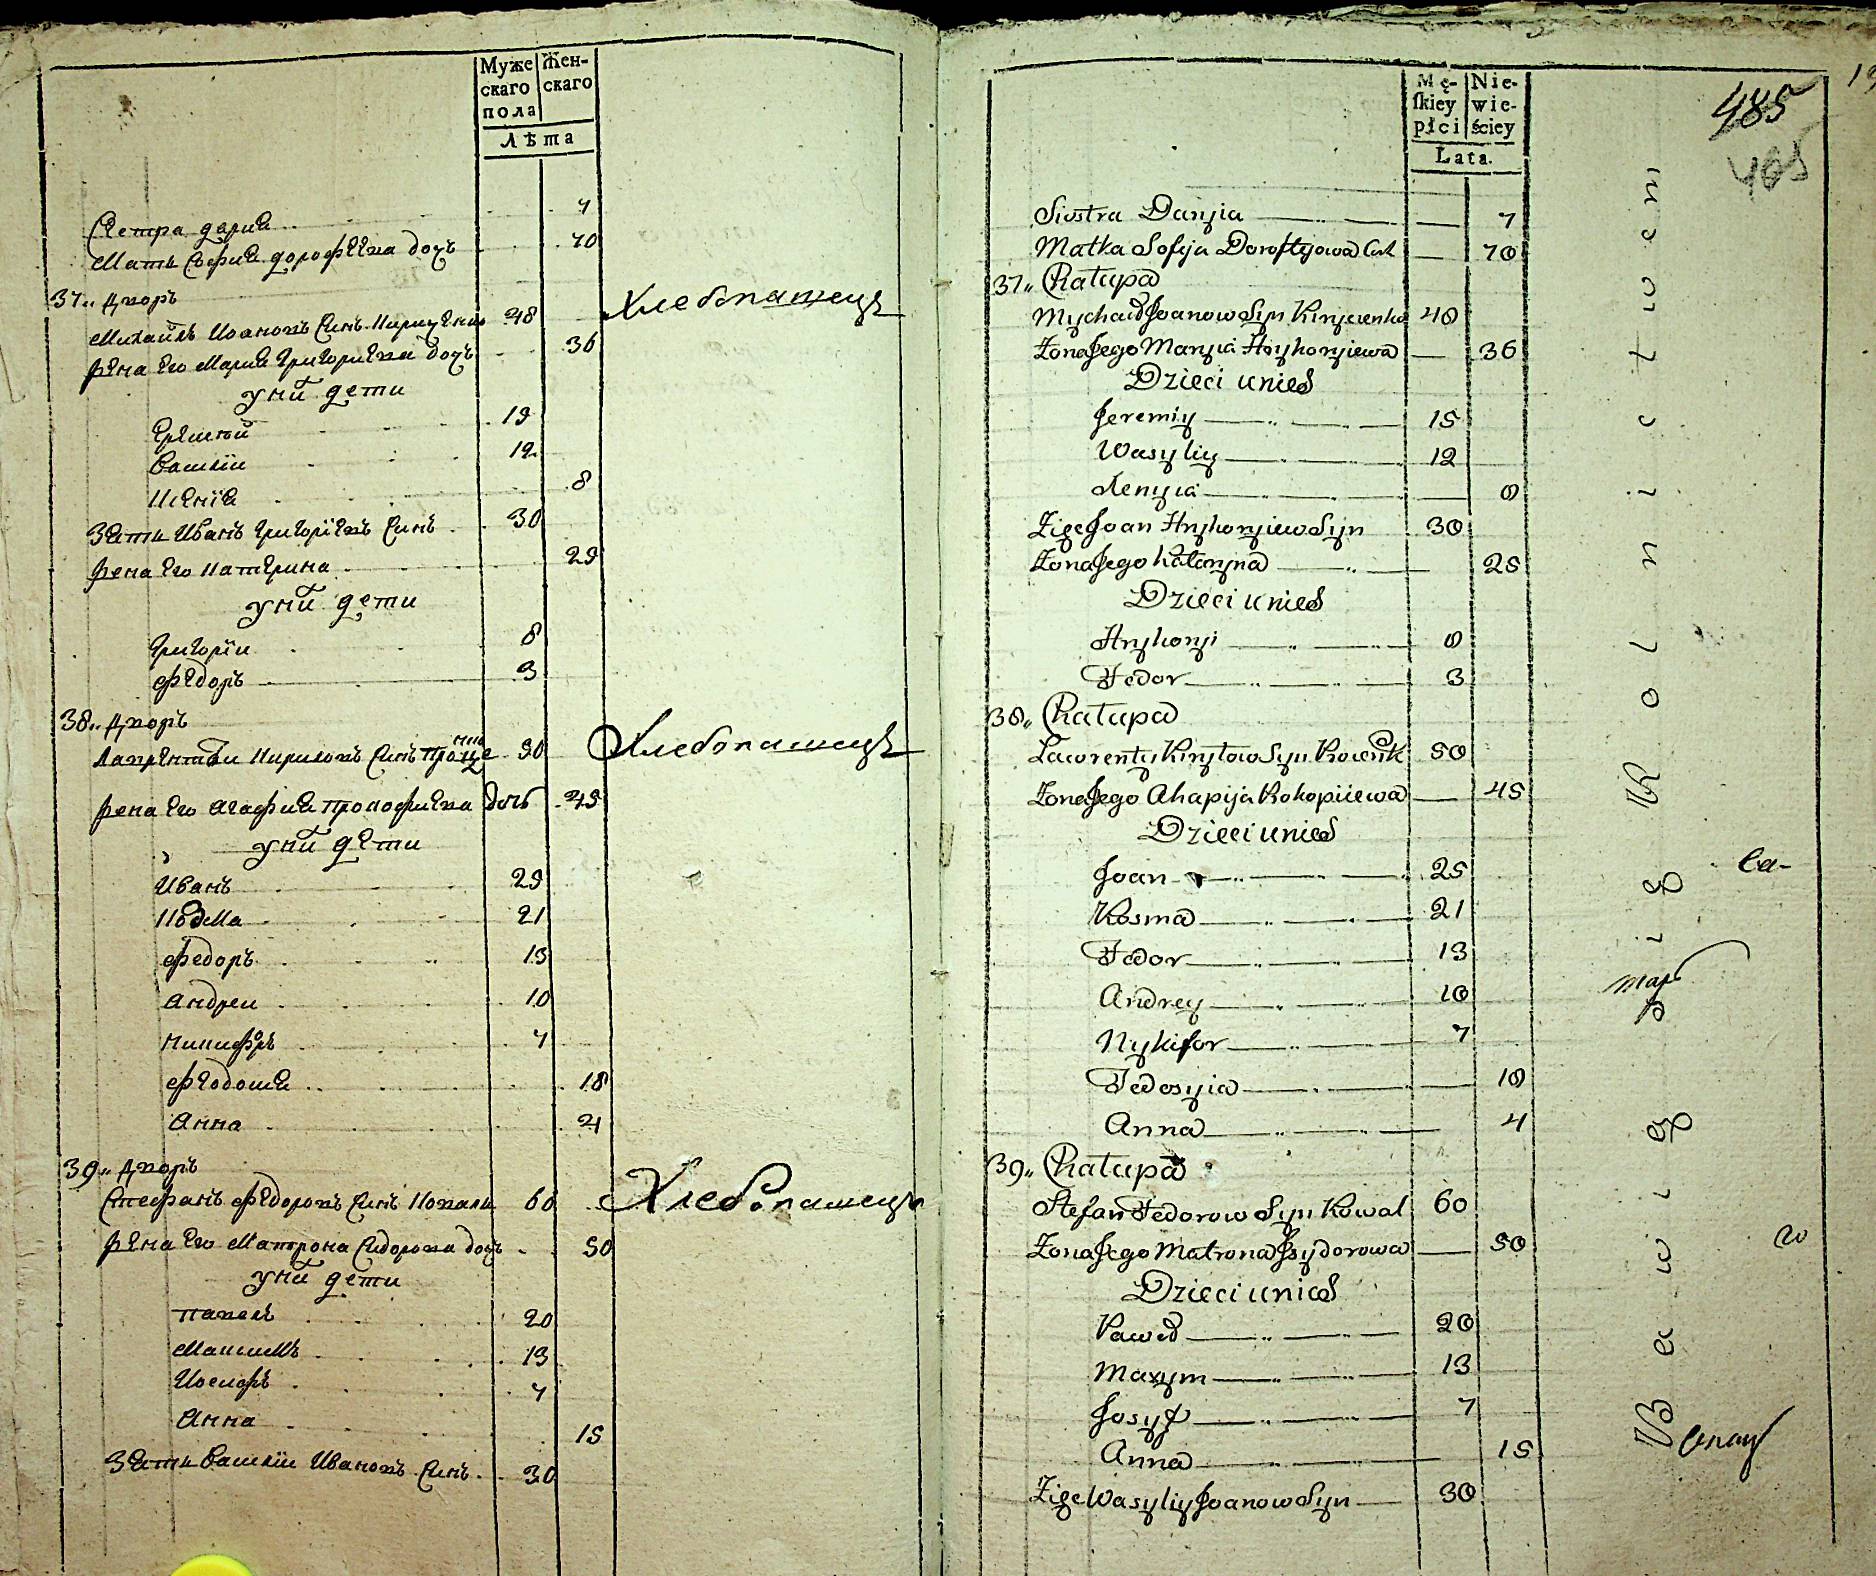 Муже
скаго
пола
Жен-
скаго
Лѣта
Сестра дария 7
Мать София дорофеева дочь 70
37,, Дворъ
Михайлъ Ивановъ Синъ Кириченко 48 Хлебопашецъ
жена Его Мария Григориева дочь 36
у них дети
Еремѣй 15
Василїи 12
Ксения 8
Зять Иванъ Григорїевъ Синъ 30
жена Его Катерина 25
у них дети
Григорїи 8
Федоръ 3
38,, Дворъ
Лаврентѣи Кириловъ Синъ 50 Хлебопашецъ
жена Его Агафия Прокофиева дочь 45
у них дети
Иванъ 25
Козма 21
Федоръ 13
Андреи 10
Никифоръ 7
Феодосия 18
Анна 4
39,, Дворъ
Стефанъ Федоровъ Синъ Коваль 60 Хлебопашецъ
жена Его Матрона Сидорова дочь 50
у них дети
Павелъ 20
Максимъ 13
Иосифъ 7
Анна 15
Зять Василїи Ивановъ Синъ 30
Mę-
ſkiey
płci
Nie-
wie-
ściey
Lata.
485
485
Siostra Daryia 7
Matka Sofija Doroftyiowa Cork 70
37,, Chałupa
Mychaił Joanow Syn Kiryczenko 48
Zona Jego Maryia Hryhoryiewa 36
Dzieci u nich
Jeremiy 15
Wasyliy 12
Xenyia 8
Zięć Joan Hryhoryiew Syn 30
Zona Jego Kataryna 25
Dzieci u nich
Hryhoryi 8
Fedor 3
38,, Chałupa
Lawrenty Kryłow Syn 50
Zona Jego Ahapija Kokopiiewa 45
Dzieci u nich
Joan 25
Kosma 21
Fedor 13
Andrey 10
Nykifor 7
Fedosyia 18
Anna 4
39,, Chałupa
Stefan Fedorow Syn Kowal 60
Zona Jego Matrona Jsydorowa 50
Dzieci u nich
Paweł 20
Maxym 13
Josyf 7
Anna 15
Zięć Wasyliy Joanow Syn 30
Bawią się Rolnictwem